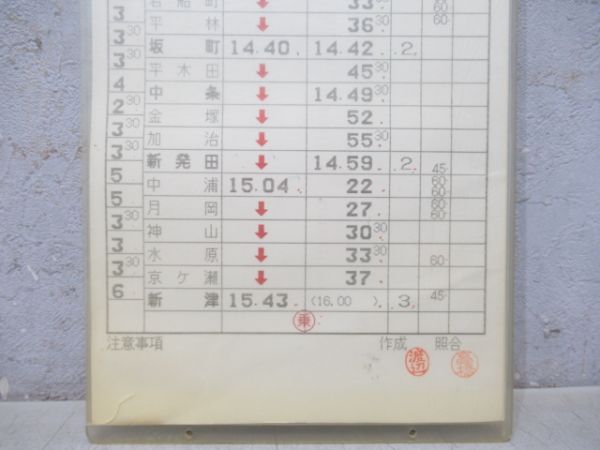 岩船町 ↓ 33 60
3 30 平林 ↓ 36 30 60
3 30 坂町 14.40. 14.42. 2.
4 平木田 ↓ 45 30
2 30 中条 ↓ 14.49 30
3 金塚 ↓ 52.
3 30 加治 ↓ 55 30
3 30 新発田 ↓ 14.59. 2. 45
5 中浦 15.04. 22. 60 60
5 月岡 ↓ 27. 60 60
3 30 神山 ↓ 30 30
3 水原 ↓ 33 30 60
3 30 京ケ瀬 ↓ 37.
6 新津 15.43. (16.00 ) 3. 45
乗
注意事項 作成 渡辺 照合